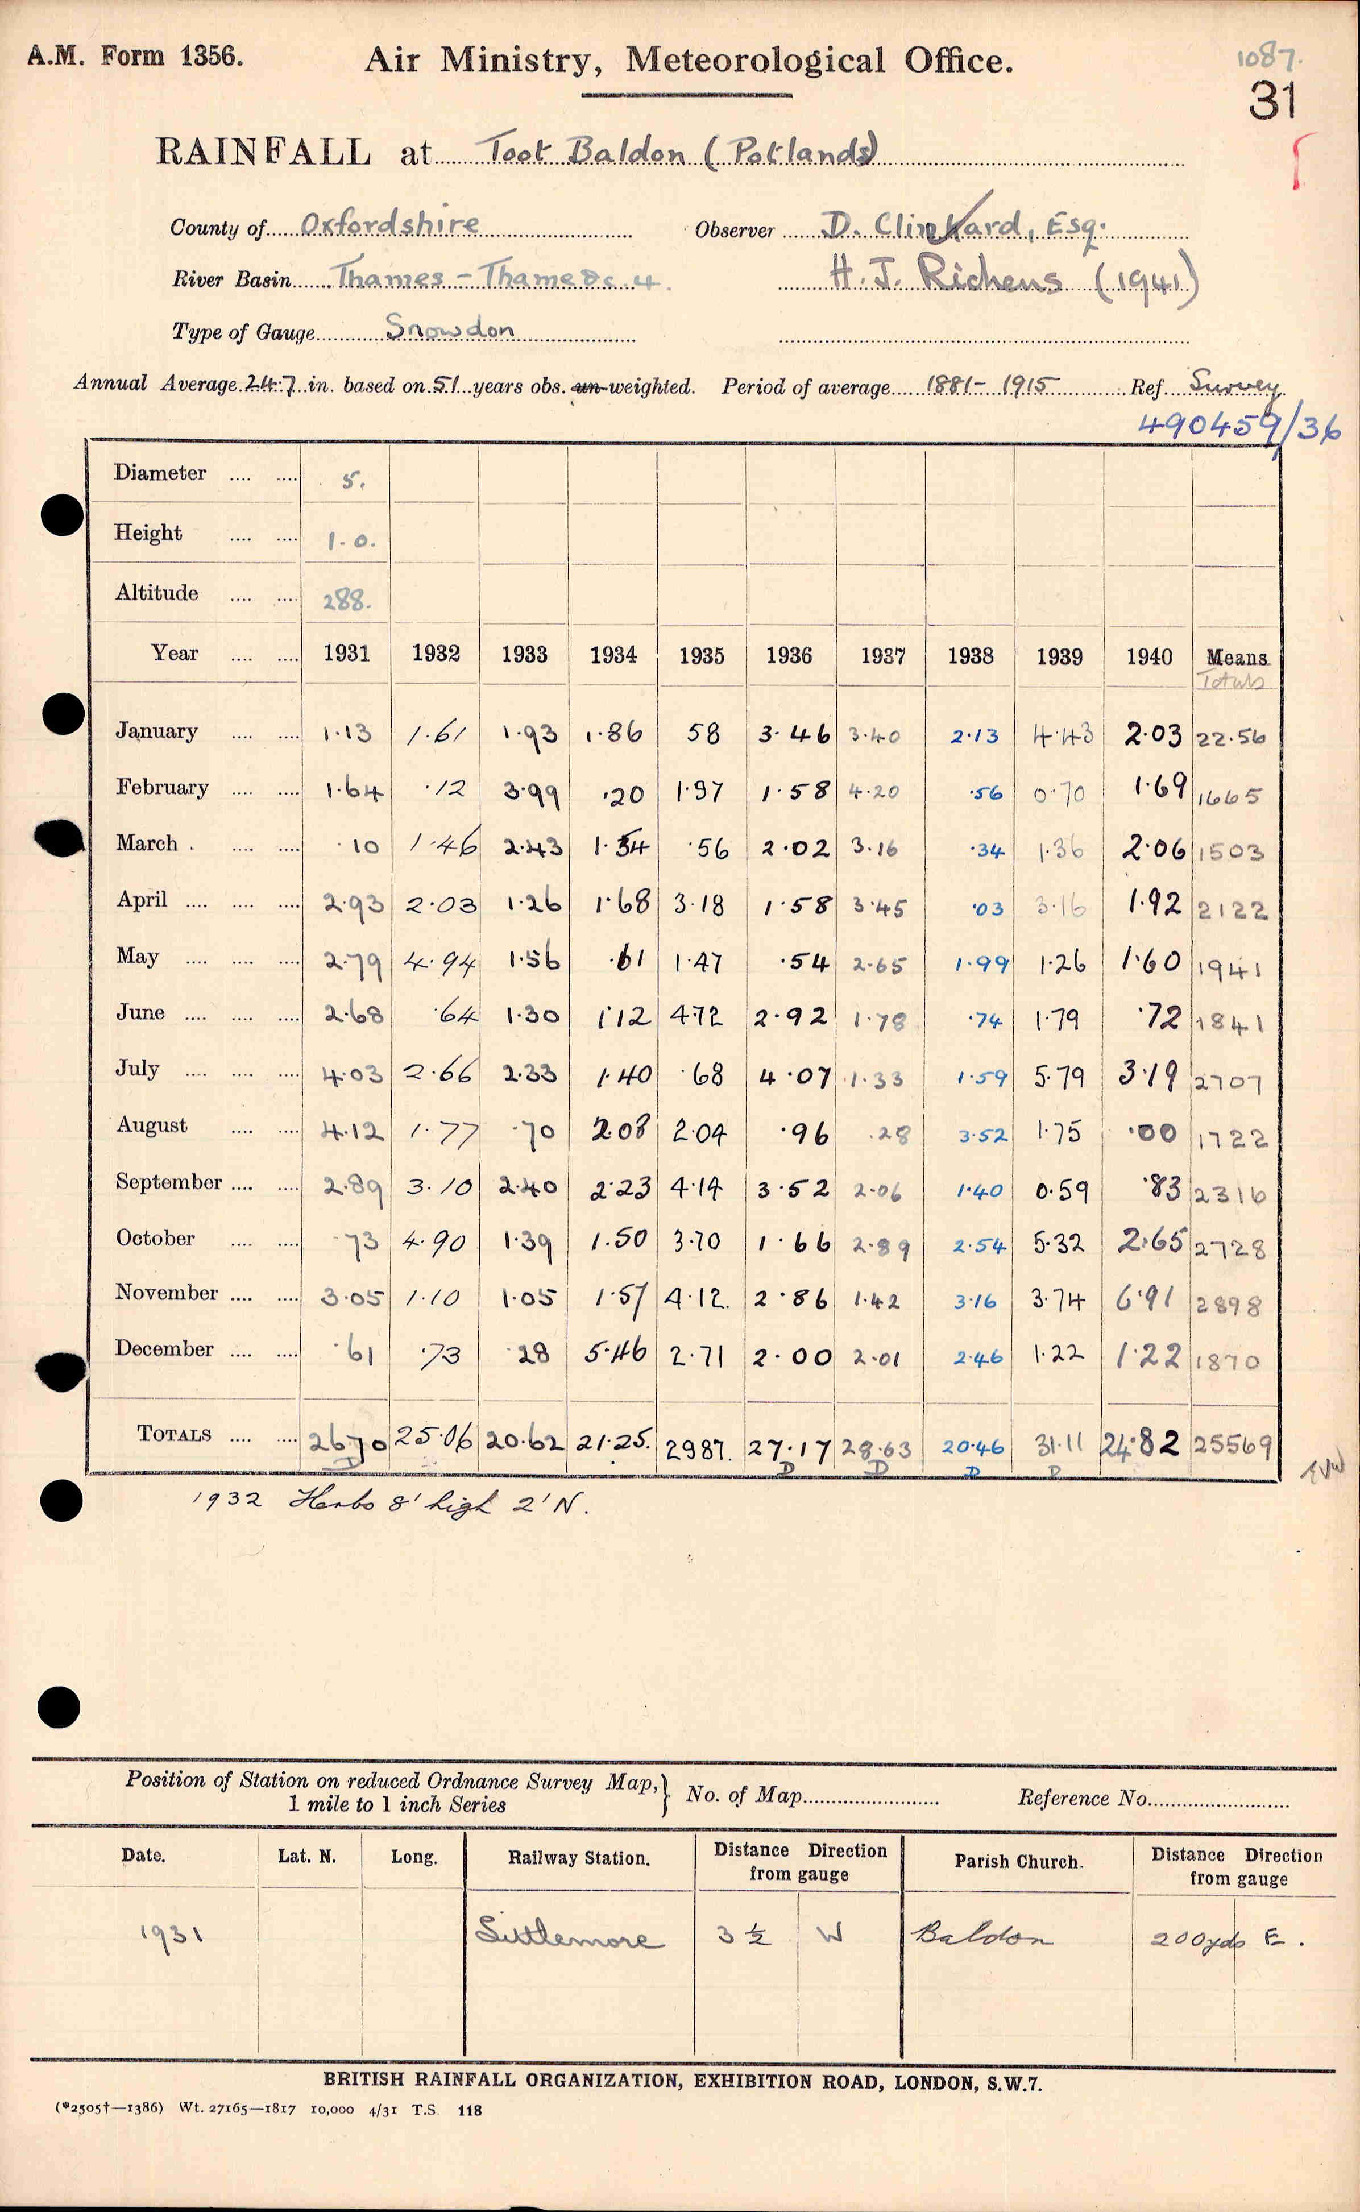 A.M. Form 1356.
Air Ministry, Meteorological Office.
1087.
31
RAINFALL at Toot Baldon (Potlands)
County of Oxfordshire Observer D. Clinkard, Esq.
River Basin Thames - Thame &c. 4. H. J. Richens (1941)
Type of Gauge Snowdon
Annual Average 24.7 in. based on 51 years obs. un-weighted. Period of average 1881-1915 Ref Survey
490459/36
Diameter .... .... 5.
Height .... .... 1.0.
Altitude .... .... 288.
Year .... .... 1931 1932 1933 1934 1935 1936 1937 1938 1939 1940 Means
Totals
January .... .... 1.13 1.61 1.93 1.86 58 3.46 3.40 2.13 4.43 2.03 22.56
February .... .... 1.64 .12 3.99 .20 1.97 1.58 4.20 .56 0.70 1.69 1665
March . .... .... .10 1.46 2.43 1.54 .56 2.02 3.16 .34 1.36 2.06 1503
April .... .... .... 2.93 2.03 1.26 1.68 3.18 1.58 3.45 .03 3.16 1.92 2122
May .... .... .... 2.79 4.94 1.56 .61 1.47 .54 2.65 1.99 1.26 1.60 1941
June .... .... .... 2.68 .64 1.30 1.12 4.72 2.92 1.78 .74 1.79 .72 1841
July .... .... .... 4.03 2.66 2.33 1.40 .68 4.07 1.33 1.59 5.79 3.19 2707
August .... .... 4.12 1.77 .70 2.08 2.04 .96 .28 3.52 1.75 .00 1722
September .... .... 2.89 3.10 2.40 2.23 4.14 3.52 2.06 1.40 0.59 .83 2316
October .... .... .73 4.90 1.39 1.50 3.70 1.66 2.89 2.54 5.32 2.65 2728
November .... .... 3.05 1.10 1.05 1.57 4.12 2.86 1.42 3.16 3.74 6.91 2898
December .... .... .61 .73 .28 5.46 2.71 2.00 2.01 2.46 1.22 1.22 1870
TOTALS .... .... 26.70 25.06 20.62 21.25. 29.87. 27.17 28.63 20.46 31.11 24.82 25569
D D D D D
1932 Herbs 8' high 2' N.
Position of Station on reduced Ordnance Survey Map,} No. of Map Reference No.
1 mile to 1 inch Series
Date. Lat. N. Long. Railway Station. Distance Direction from gauge Parish Church. Distance Direction from gauge
1931 Littlemore 3 ½ W Baldon 200yds E.
BRITISH RAINFALL ORGANIZATION, EXHIBITION ROAD, LONDON, S.W.7.
(*2505†—1386) Wt. 27165—1817 10,000 4/31 T.S. 118